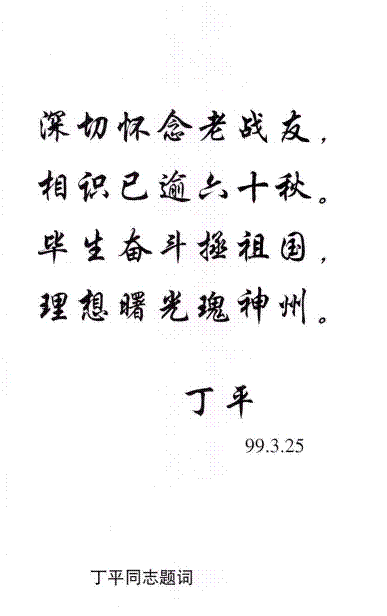 深切怀念老战友，
相识已逾六十秋。
毕生奋斗拯祖国，
理想曙光瑰神州。
丁平
99.3.25
丁平同志题词